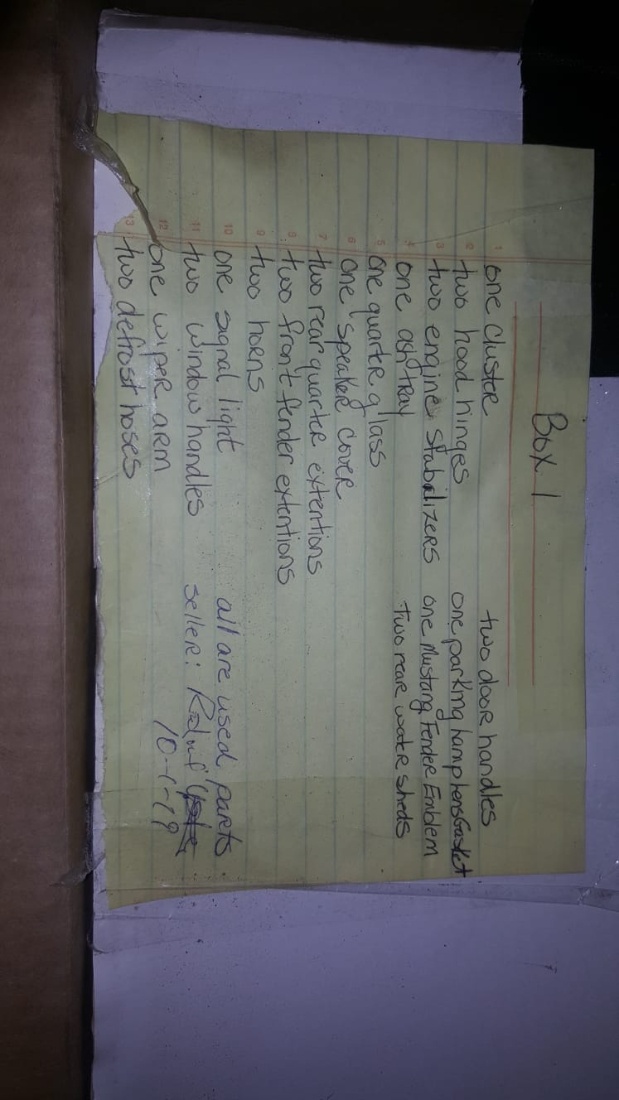 Box 1
1 one cluster two door handles
2 two hood hinges one parking lamp lens Gasket
3 two engine stabilizers one Mustang Fender Emblem
4 one ashtray Two rear water sheds
5 one quarter glass
6 one speaker cover
7 two rear quarter extentions
8 two front fender extentions
9 two horns
10 one signal light all are used parts
11 two window handles seller:
12 one wiper arm 10-1-19
13 two defrost hoses